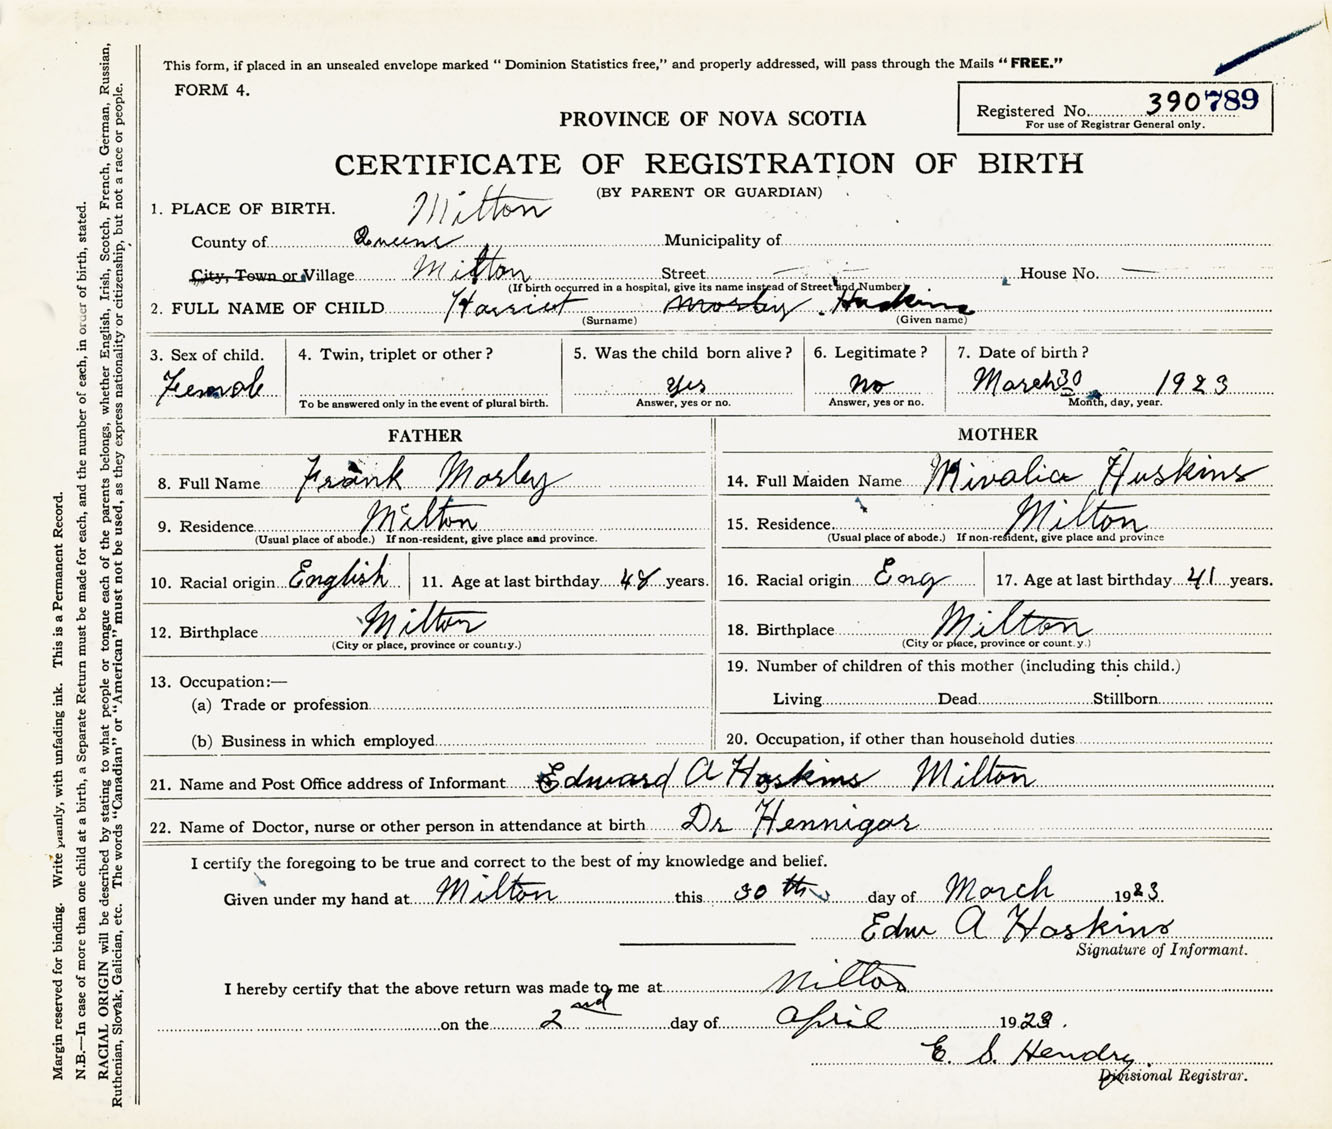 This form, if placed in an unsealed envelope marked “ Dominion Statistics free,” and properly addressed, will pass through the Mails “ FREE.”
FORM 4.
Registered No. 390789
For use of Registrar General only.
PROVINCE OF NOVA SCOTIA
CERTIFICATE OF REGISTRATION OF BIRTH
(BY PARENT OR GUARDIAN)
1. PLACE OF BIRTH. Milton
County of Queens Municipality of
City, Town or Village Milton Street House No.
(If birth occurred in a hospital, give its name instead of Street and Number)
2. FULL NAME OF CHILD Harriet Morley Huskins
(Surname) (Given name)
3. Sex of child. 4. Twin, triplet or other ? 5. Was the child born alive ? 6. Legitimate ? 7. Date of birth ?
Female Yes No March 30 1923
To be answered only in the event of plural birth. Answer, yes or no. Answer, yes or no. Month, day, year.
FATHER MOTHER
8. Full Name Frank Morley 14. Full Maiden Name Huskins
9. Residence Milton 15. Residence. Milton
(Usual place of abode.) If non-resident, give place and province. (Usual place of abode.) If non-resident, give place and province
10. Racial origin English 11. Age at last birthday 48 years. 16. Racial origin Eng 17. Age at last birthday 41 years.
12. Birthplace Milton 18. Birthplace Milton
(City or place, province or country.) (City or place, province or country.)
13. Occupation:— 19. Number of children of this mother (including this child.)
(a) Trade or profession Living Dead Stillborn
(b) Business in which employed 20. Occupation, if other than household duties
21. Name and Post Office address of Informant Edward A Hoskins Milton
22. Name of Doctor, nurse or other person in attendance at birth Dr Hennigar
I certify the foregoing to be true and correct to the best of my knowledge and belief.
Given under my hand at Milton this 30 th day of March 1923.
Edw A Hoskins
Signature of Informant.
I hereby certify that the above return was made to me at Milton
on the 2nd day of April 1923.
E. S. Hendry
Divisional Registrar.
Margin reserved for binding. Write plainly, with unfading ink. This is a Permanent Record.
N.B.—In case of more than one child at a birth, a Separate Return must be made for each, and the number of each, in order of birth, stated.
RACIAL ORIGIN will be described by stating to what people or tongue each of the parents belongs, whether English, Irish, Scotch, French, German, Russian,
Ruthenian, Slovak, Galician, etc. The words “Canadian” or “American” must not be used, as they express nationality or citizenship, but not a race or people.